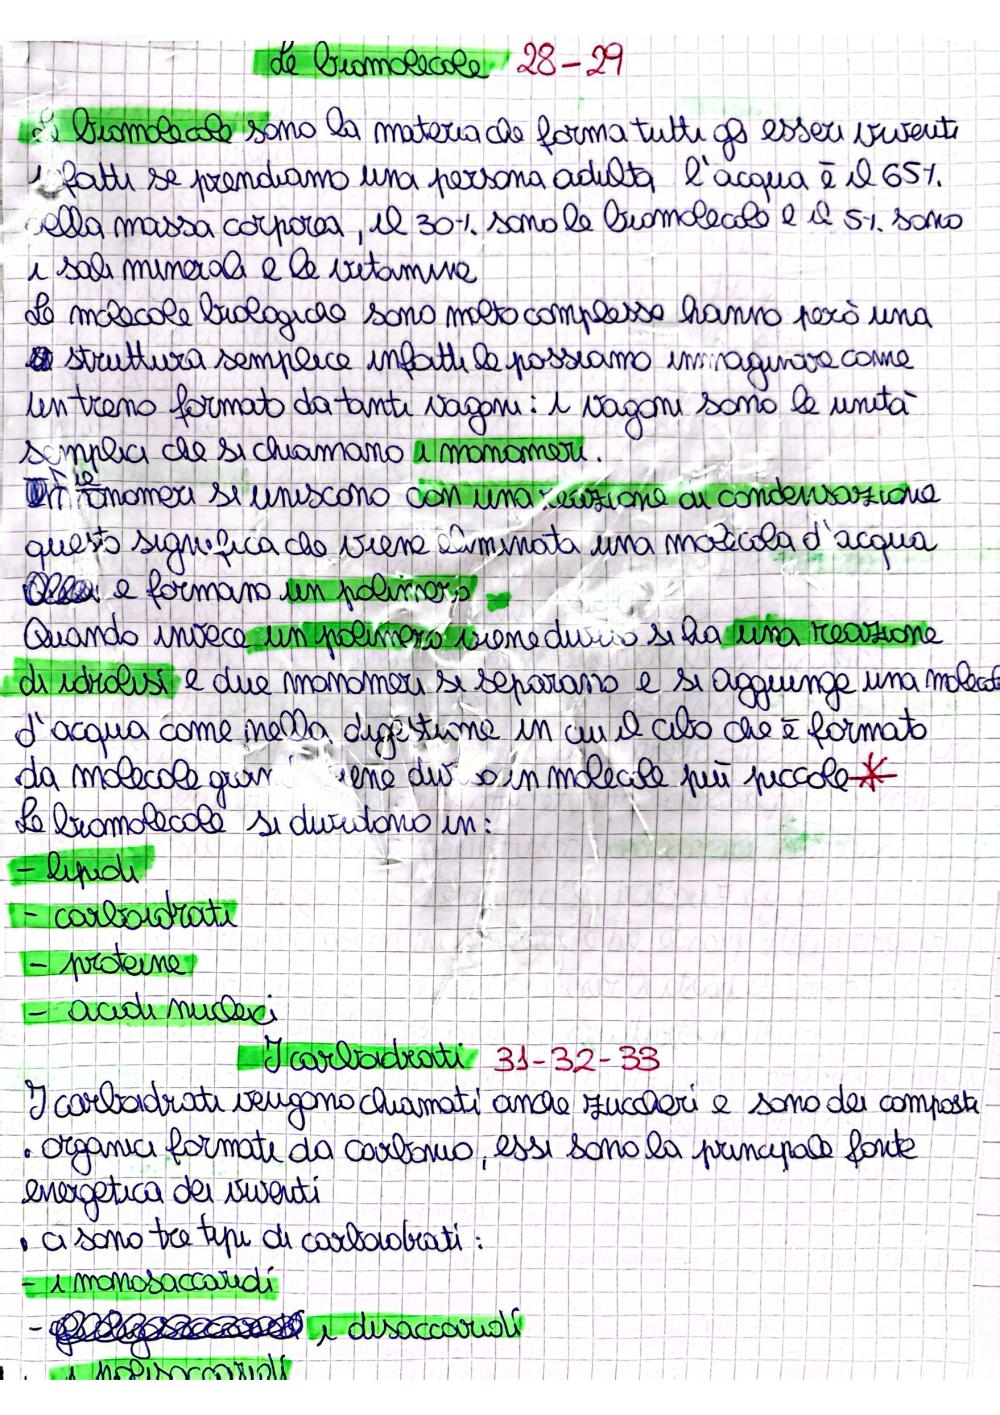 Le biomolecole 28-29
Le biomolecole sono la materia che forma tutti gli esseri viventi
infatti se prendiamo una persona adulta l'acqua è il 65%
della massa corporea, il 30% sono le biomolecole e il 5% sono
i sali minerali e le vitamine
Le molecole biologiche sono molto complesse hanno però una
struttura semplice infatti le possiamo immaginare come
un treno formato da tanti vagoni: i vagoni sono le unità
semplici che si chiamano i monomeri.
monomeri si uniscono con una reazione di condensazione
questo significa che viene eliminata una molecola d'acqua
e formano un polimero
Quando invece un polimero viene diviso si ha una reazione
di idrolisi e due monomeri si separano e si aggiunge una molecola
d'acqua come nella digestione in cui il cibo che è formato
da molecole grandi viene diviso in molecole più piccole *
Le biomolecole si dividono in:
- lipidi
- carboidrati
- proteine
- acidi nucleici
I carboidrati 31-32-33
I carboidrati vengono chiamati anche zuccheri e sono dei composti
• organici formati da carbonio, essi sono la principale fonte
energetica dei viventi
• ci sono tre tipi di carboidrati:
- i monosaccaridi
- i disaccaridi
i polisaccaridi